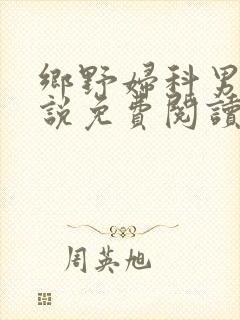 鄉野婦科男
説免費閱讀
周英旭